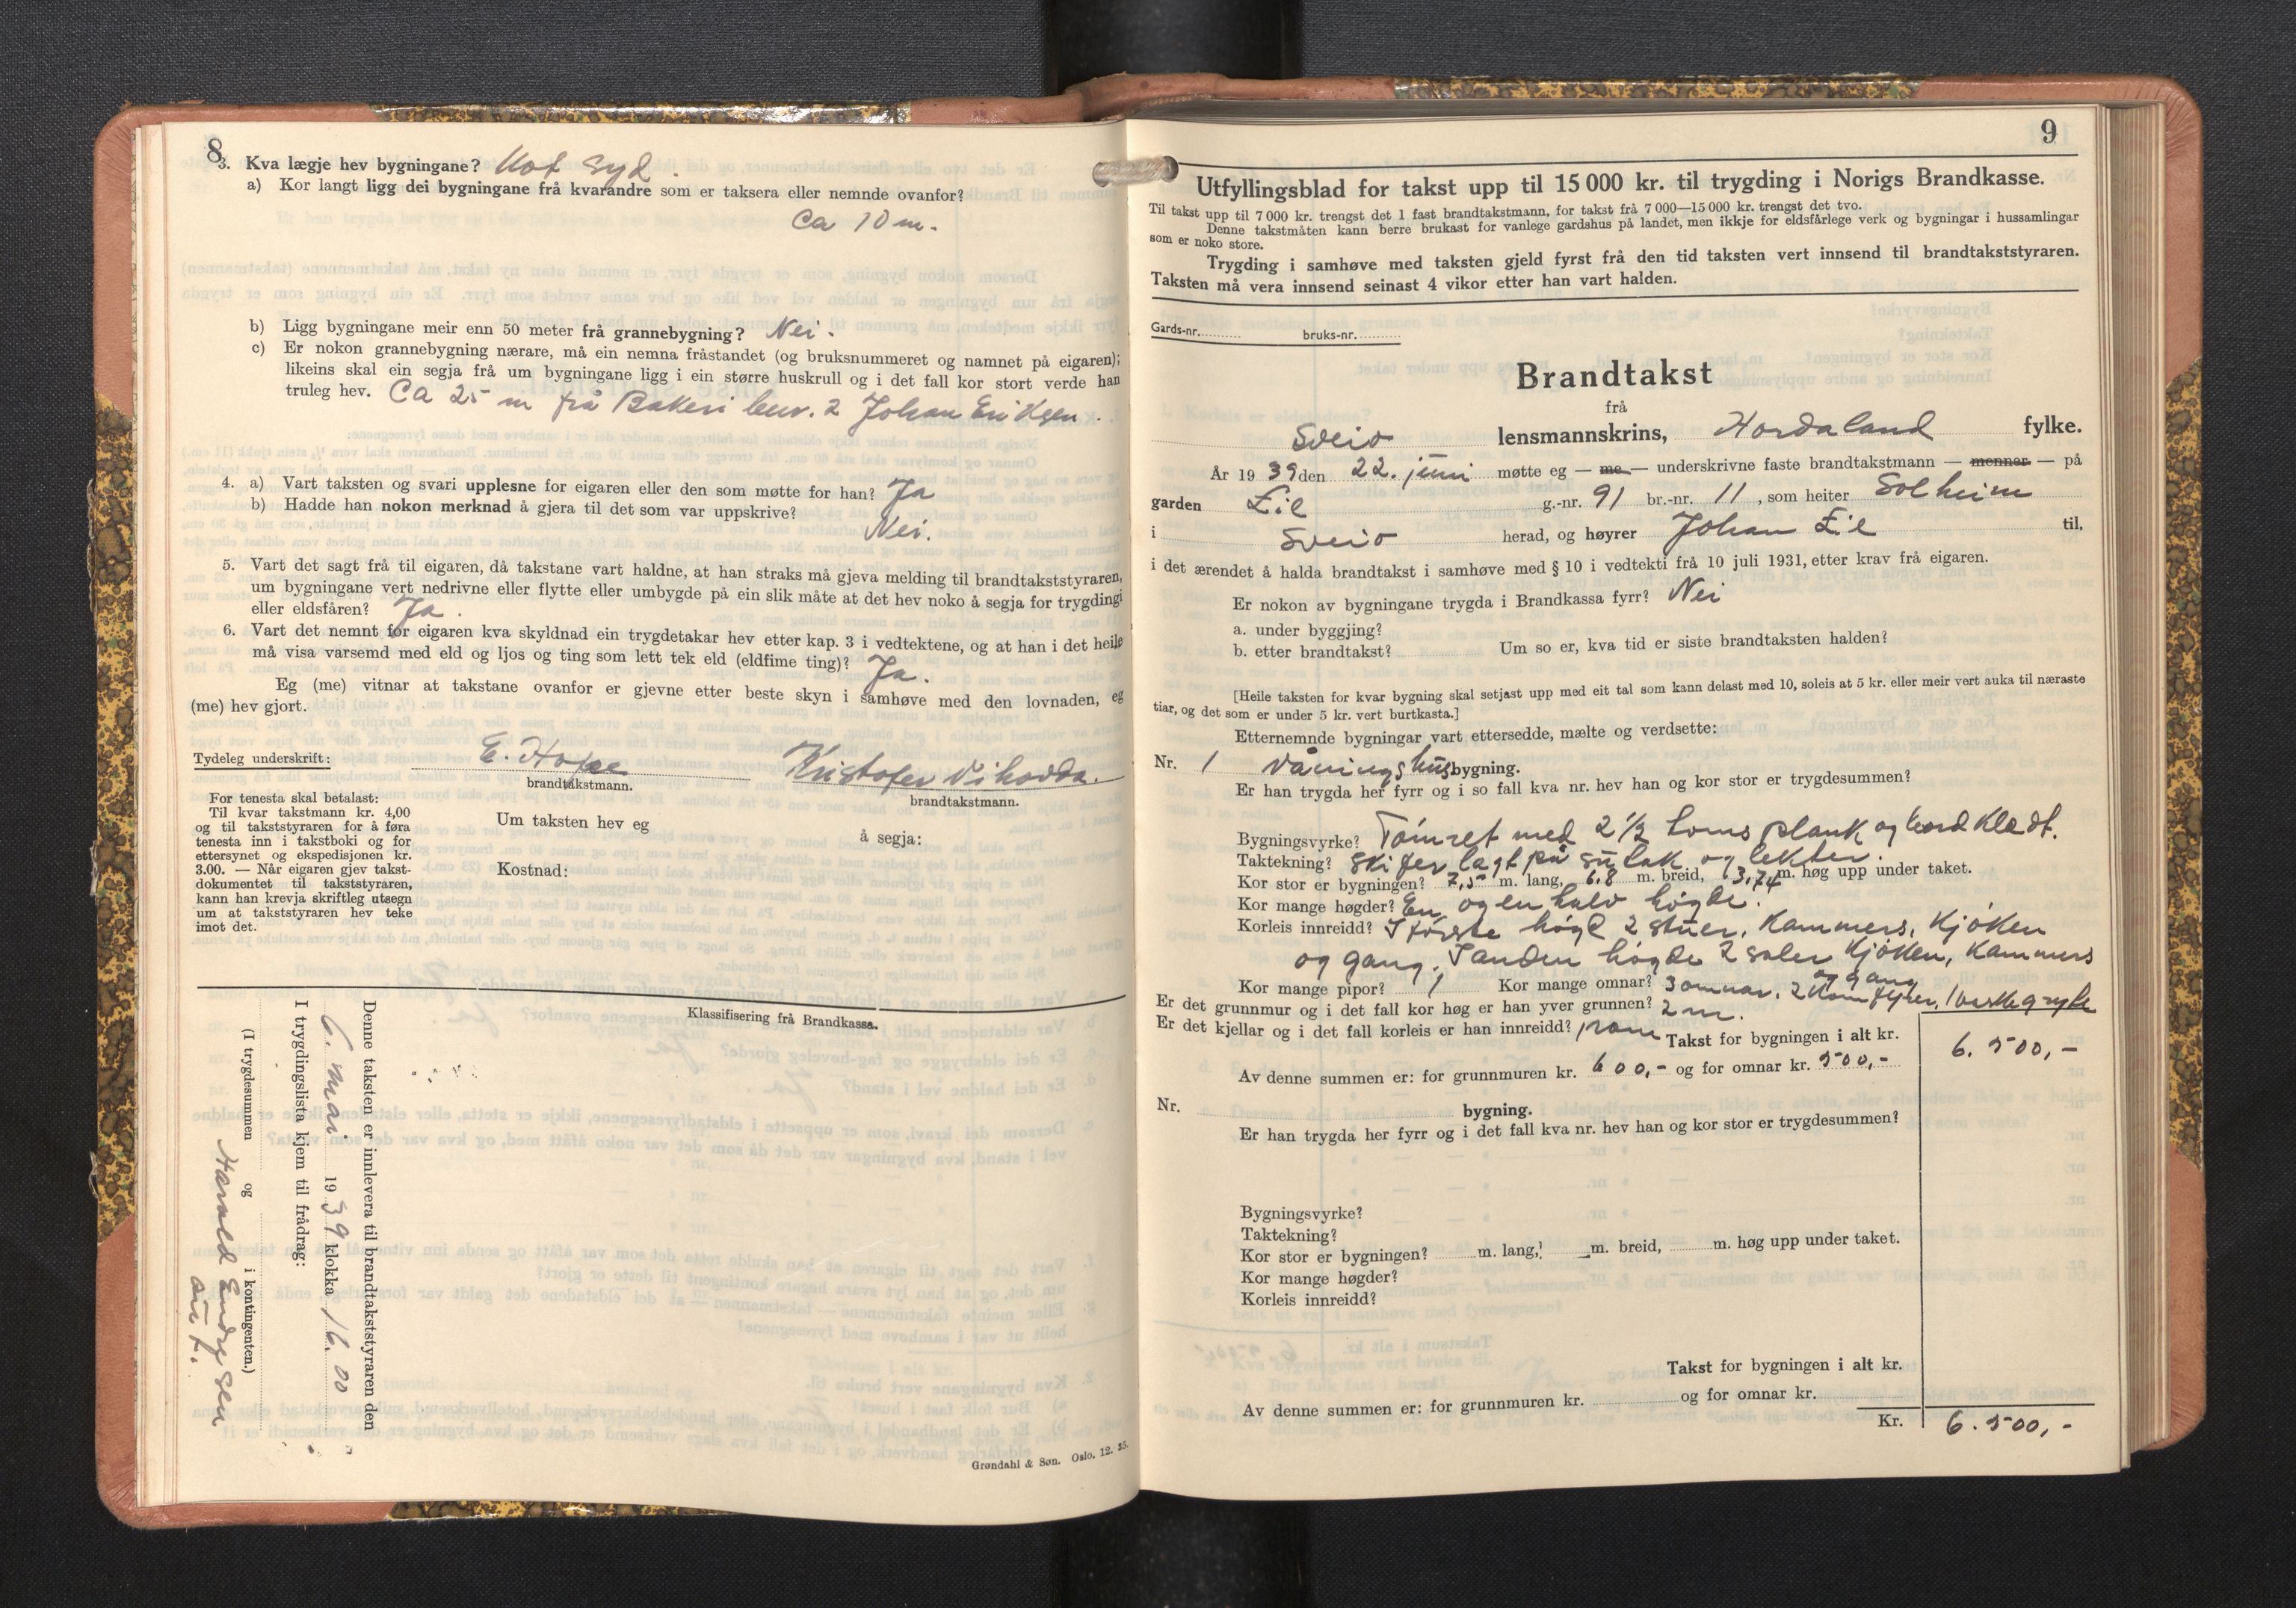 8
3. Kva lægje hev bygningane? Mot syd.
a) Kor langt ligg dei bygningane frå kvarandre som er taksera eller nemnde ovanfor?
Ca 10 m.
b) Ligg bygningane meir enn 50 meter frå grannebygning? Nei.
c) Er nokon grannebygning nærare, må ein nemna fråstandet (og bruksnummeret og namnet på eigaren);
likeins skal ein segja frå um bygningane ligg i ein større huskrull og i det fall kor stort verde han
truleg hev. Ca 25 m frå Bakeri bnr. 2 Johan Eriksen.
4. a) Vart taksten og svari upplesne for eigaren eller den som møtte for han? Ja
b) Hadde han nokon merknad å gjera til det som var uppskrive?
Nei.
5. Vart det sagt frå til eigaren, då takstane vart haldne, at han straks må gjeva melding til brandtakststyraren,
um bygningane vert nedrivne eller flytte eller umbygde på ein slik måte at det hev noko å segja for trygdingi
eller eldsfåren? Ja.
6. Vart det nemnt for eigaren kva skyldnad ein trygdetakar hev etter kap. 3 i vedtektene, og at han i det heile
må visa varsemd med eld og ljos og ting som lett tek eld (eldfime ting)? Ja.
Eg (me) vitnar at takstane ovanfor er gjevne etter beste skyn i samhøve med den lovnaden, eg
(me) hev gjort.
Tydeleg underskrift: E. Hope Kristofer Vihovda.
brandtakstmann. brandtakstmann.
For tenesta skal betalast:
Til kvar takstmann kr. 4,00
og til takststyraren for å føra
tenesta inn i takstboki og for
ettersynet og ekspedisjonen kr.
3.00. — Når eigaren gjev takst-
dokumentet til takststyraren,
kann han krevja skriftleg utsegn
um at takststyraren hev teke
imot det.
Um taksten hev eg å segja:
Kostnad:
Klassifisering frå Brandkassa.
Denne taksten er innlevera til brandtakststyraren den
6. mai 1939 klokka 16.00
I trygdingslista kjem til frådrag:
(I trygdesummen og i kontingenten.)
Harald Endresen
aut.
Grøndahl & Søn. Oslo. 12. 35.
9
Utfyllingsblad for takst upp til 15 000 kr. til trygding i Norigs Brandkasse.
Til takst upp til 7 000 kr. trengst det 1 fast brandtakstmann, for takst frå 7 000—15 000 kr. trengst det tvo.
Denne takstmåten kann berre brukast for vanlege gardshus på landet, men ikkje for eldsfårlege verk og bygningar i hussamlingar
som er noko store.
Trygding i samhøve med taksten gjeld fyrst frå den tid taksten vert innsend til brandtakststyraren.
Taksten må vera innsend seinast 4 vikor etter han vart halden.
Gards-nr. bruks-nr.
Brandtakst
frå
Sveio lensmannskrins, Hordaland fylke.
År 1939 den 22. juni møtte eg — me — underskrivne faste brandtakstmann — menner — på
garden Eil g.-nr. 91 br.-nr. 11, som heiter Solheim
i Sveio herad, og høyrer Johan Eil til,
i det ærendet å halda brandtakst i samhøve med § 10 i vedtekti frå 10 juli 1931, etter krav frå eigaren.
Er nokon av bygningane trygda i Brandkassa fyrr? Nei
a. under byggjing?
b. etter brandtakst? Um so er, kva tid er siste brandtaksten halden?
[Heile taksten for kvar bygning skal setjast upp med eit tal som kann delast med 10, soleis at 5 kr. eller meir vert auka til næraste
tiar, og det som er under 5 kr. vert burtkasta.]
Etternemnde bygningar vart ettersedde, mælte og verdsette:
Nr. 1 Våningshus bygning.
Er han trygda her fyrr og i so fall kva nr. hev han og kor stor er trygdesummen?
Bygningsvyrke? Tømret med 2½ toms plank og bord klædt.
Taktekning? Skifer lagt på sulak og lekter.
Kor stor er bygningen? 7,5 m. lang, 6.8 m. breid, 3,74 m. høg upp under taket.
Kor mange høgder? En og en halv høgde.
Korleis innreidd? I første høgd 2 stuer, Kammers, Kjøken
og gang. I anden høgde 2 saler Kjøken, Kammers
og gang
Kor mange pipor? 1 Kor mange omnar? 3 omnar, 2 Komfyrer, 1 vaskegryte
Er det grunnmur og i det fall kor høg er han yver grunnen? 2 m.
Er det kjellar og i det fall korleis er han innreidd? 1 rom
Takst for bygningen i alt kr. 6.500,-
Av denne summen er: for grunnmuren kr. 600,- og for omnar kr. 500,-
Nr. bygning.
Er han trygda her fyrr og i det fall kva nr. hev han og kor stor er trygdesummen?
Bygningsvyrke?
Taktekning?
Kor stor er bygningen? m. lang, m. breid, m. høg upp under taket.
Kor mange høgder?
Korleis innreidd?
Takst for bygningen i alt kr.
Av denne summen er: for grunnmuren kr. og for omnar kr.
Kr. 6.500,-